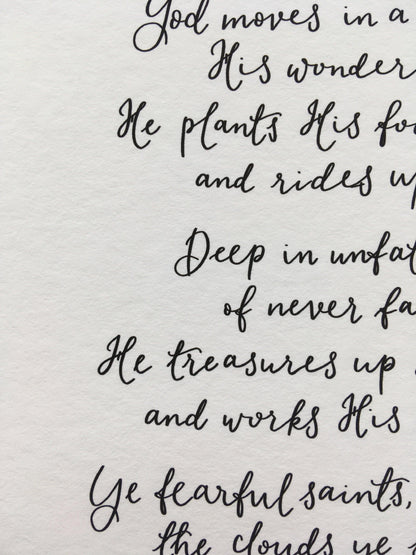 God moves in a
His wonder
He plants His foo
and rides up
Deep in unfat
of never fa
He treasures up
and works His
Ye fearful saints,
the clouds ye